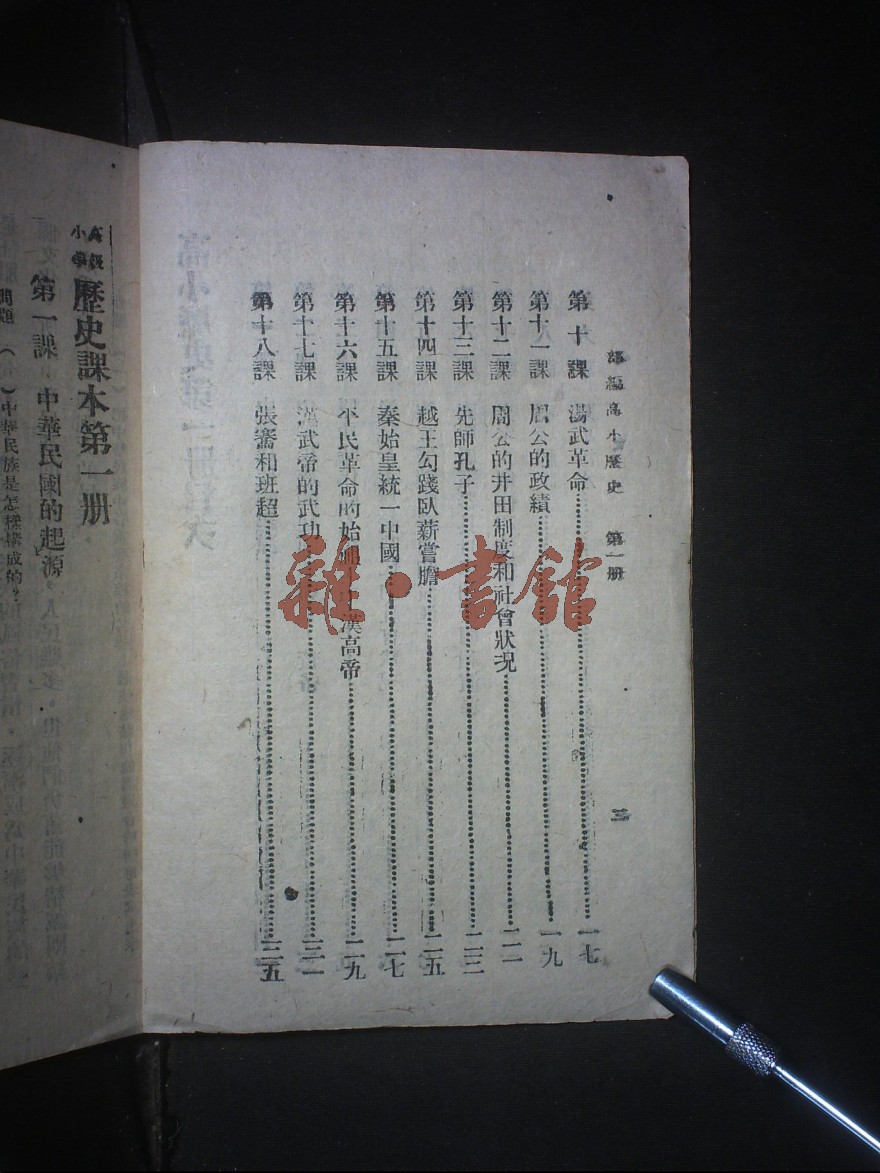 部編高小歷史 第一册
二
第十課 湯武革命 一七
第十一課 周公的政績 一九
第十二課 周公的井田制度和社會狀況 二一
第十三課 先師孔子 二三
第十四課 越王勾踐臥薪嘗膽 二五
第十五課 秦始皇統一中國 二七
第十六課 平民革命的始 漢高帝 二九
第十七課 漢武帝的武功 三一
第十八課 張騫和班超 三五
雜·書館
高級小學 歷史課本第一册
第一課 中華民國的起源
問題 （ ）中華民族是怎樣構成的？